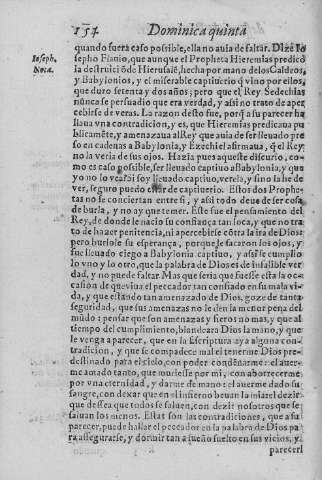 154
Dominica quinta
Ioseph.
Nota.
quando fuera caso possible, ella no auia de faltar. Dize Io
sepho Flauio, que aunque el Propheta Hieremias predicò
la destruiciõ de Hierusalẽ, hecha por mano de los Caldeos,
y Babylonios, y el miserable captiuerio q̃ vino por ellos,
que duro setenta y dos años; pero que el Rey Sedechias
nunca se persuadio que era verdad, y assi no trato de aper
cebirse de veras. La razon desto fue, porq̃ a su parecer ha
llaua vna contradicion, y es, que Hieremias predicaua pu
blicamẽte, y amenazaua al Rey que auia de ser lleuado pre
so en cadenas a Babylonia, y Ezechiel afirmaua, q̃ el Rey
no la veria de sus ojos. Hazia pues aqueste discurio, co-
mo es caso possible, ser lleuado captiuo a Babylonia, y que
yo no lo vea? si soy lleuado captiuo, verela, y sino la he de
ver, seguro puedo estar de captiuerio. Estos dos Prophe-
tas no se conciertan entre si, assi todo deue de ser cosa
de burla, y no ay que temer. Este fue el pensamiento del
Rey, de donde le nacio su confiança tan loca, y que no tra
to de hazer penitencia, ni apercebirse cõtra la ira de Dios:
pero burlole su esperança, porque le sacaron los ojos, y
fue lleuado ciego a Babylonia captiuo, y assi se cumplio
lo vno y lo otro, que la palabra de Dios es de infalible ver
dad, y no puede faltar. Mas que seria que fuesse esta la o-
casion de que viua el peccador tan confiado en su mala vi-
da, y que estando tan amenazado de Dios, goze de tanta
seguridad, que sus amenazas no le den la menor pena del
mũdo: pensar que son amenazas y fieros no mas, y que al
tiempo del cumplimiento, blandeara Dios la mano, y que
le venga a parecer, que en la Escriptura aya alguna con-
tradicion, y que se compadece mal el tenerme Dios pre-
destinado para el cielo, con poder condẽnarme: el auer-
me amado tanto, que muriesse por mi, con aborrecerme
por vna eternidad, y darme de mano: el auerme dado su
sangre, con dexar que en el infierno beuan la mia: el dezir
que dessea que todos se saluen, con dezir nosotros que se
saluan los menos. Estas son las contradiciones, que a su
parecer, puede hallar el peccador en la palabra de Dios pa
ra assegurarse, y dormir tan a sueño suelto en sus vicios, y
parecerl